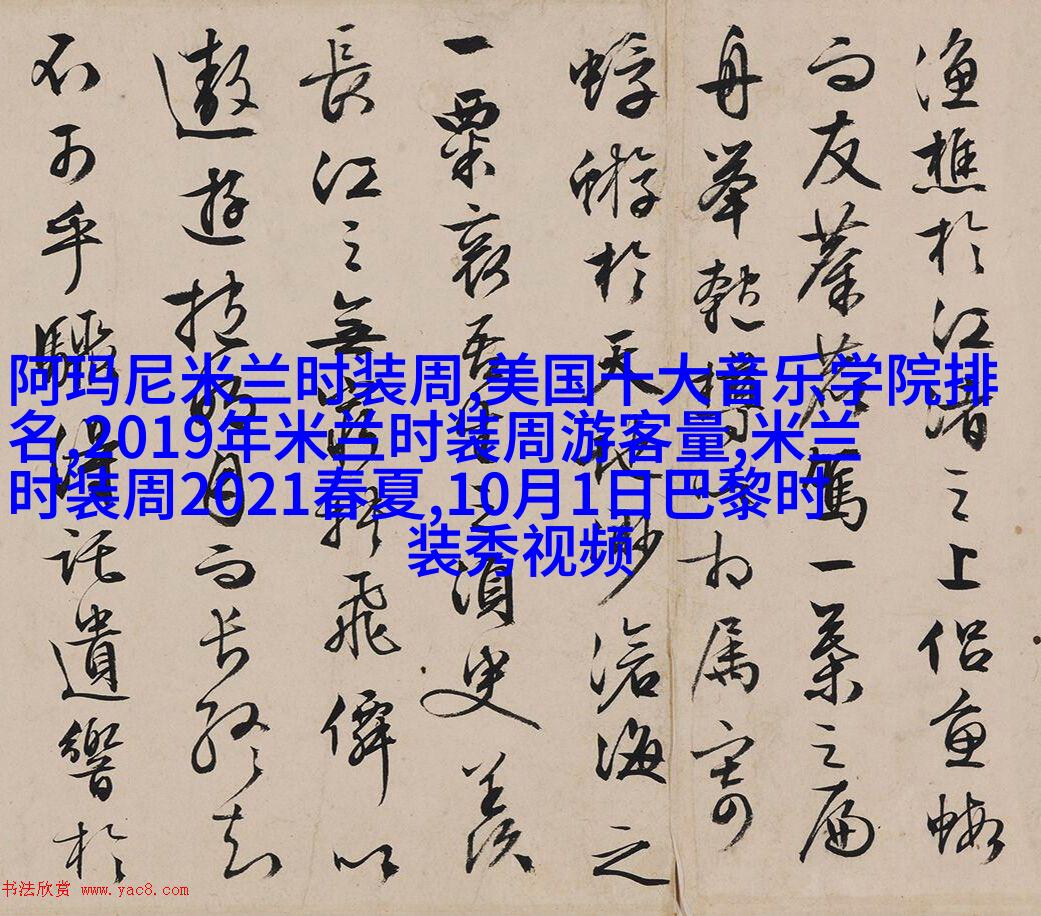 渔樵於江渚之上侣鱼蝦
而友麋鹿駕一葉之扁
舟举匏樽以相属寄
蜉蝣於天地渺滄海之
一粟哀吾生之須臾羨
長江之無窮挟飛僊以
遨遊抱明月而长终知
不可乎驟得託遺響於
阿玛尼米兰时装周,美国十大音乐学院排
名,2019年米兰时装周游客量,米兰
时装周2021春夏,10月1日巴黎时
装秀视频
书法欣赏 www.yac8.com